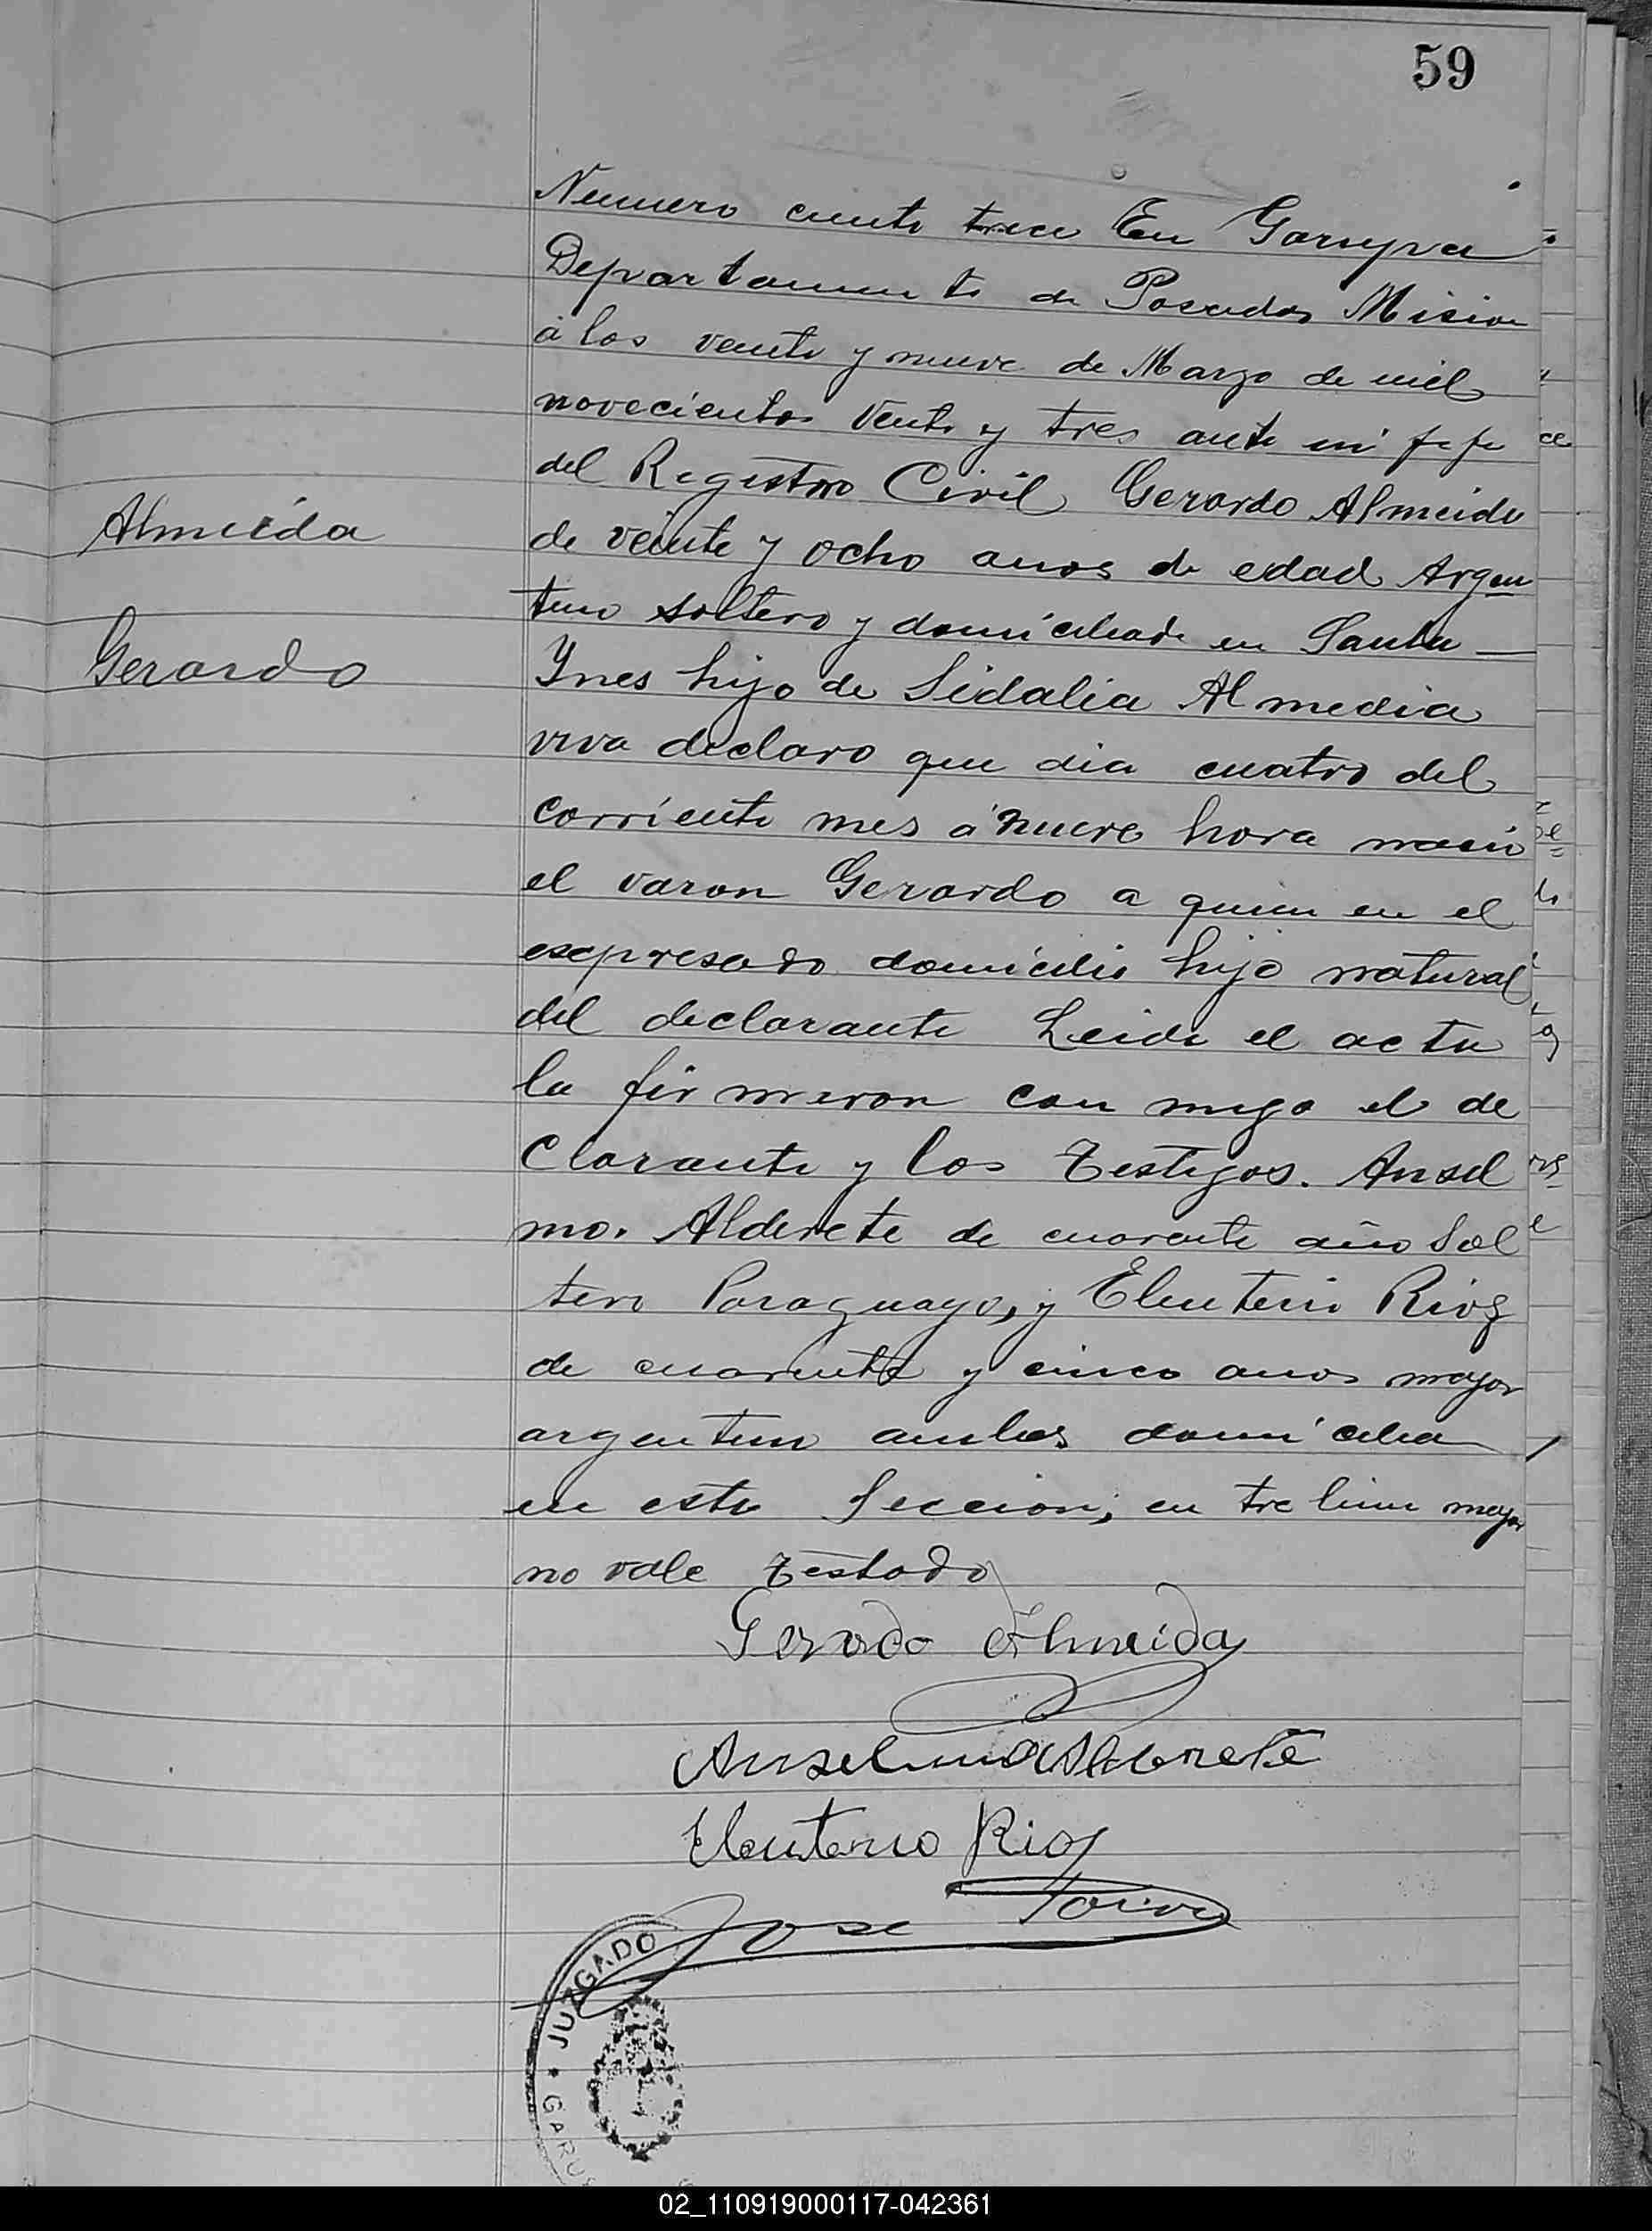 59
Numero ciento trece En Garupa
Departamento de Posadas Mision
á los veinte y nueve de Marzo de mil
novecientos veinte y tres ante mi Jefe
del Registro Civil Gerardo Almeida
Almeida
de veinte y ocho anos de edad Argen
tino soltero y domiciliado en Santa
Gerardo
Ynes hijo de Sidalia Almedia
viva declaro que dia cuatro del
corriente mes á nueve hora nacio
el varon Gerardo a quien en el
esepresado domicilio hijo natural
del declarante Leida el acta
la firmeron con migo el de
Clarante y los Testigos. Ansel
mo. Alderete de cuarente año Sol
tero Paraguayo, y Eleuterio Rios
de cuarenta y cinco anos mayor
argentino ambos domicilia
en esta Seccion; en tre linia mayor
no vale Testado
Gerardo Almeida
Anselmo Alderete
Eleuterio Rios
Jose
JUZGADO
GARU
02_110919000117-042361